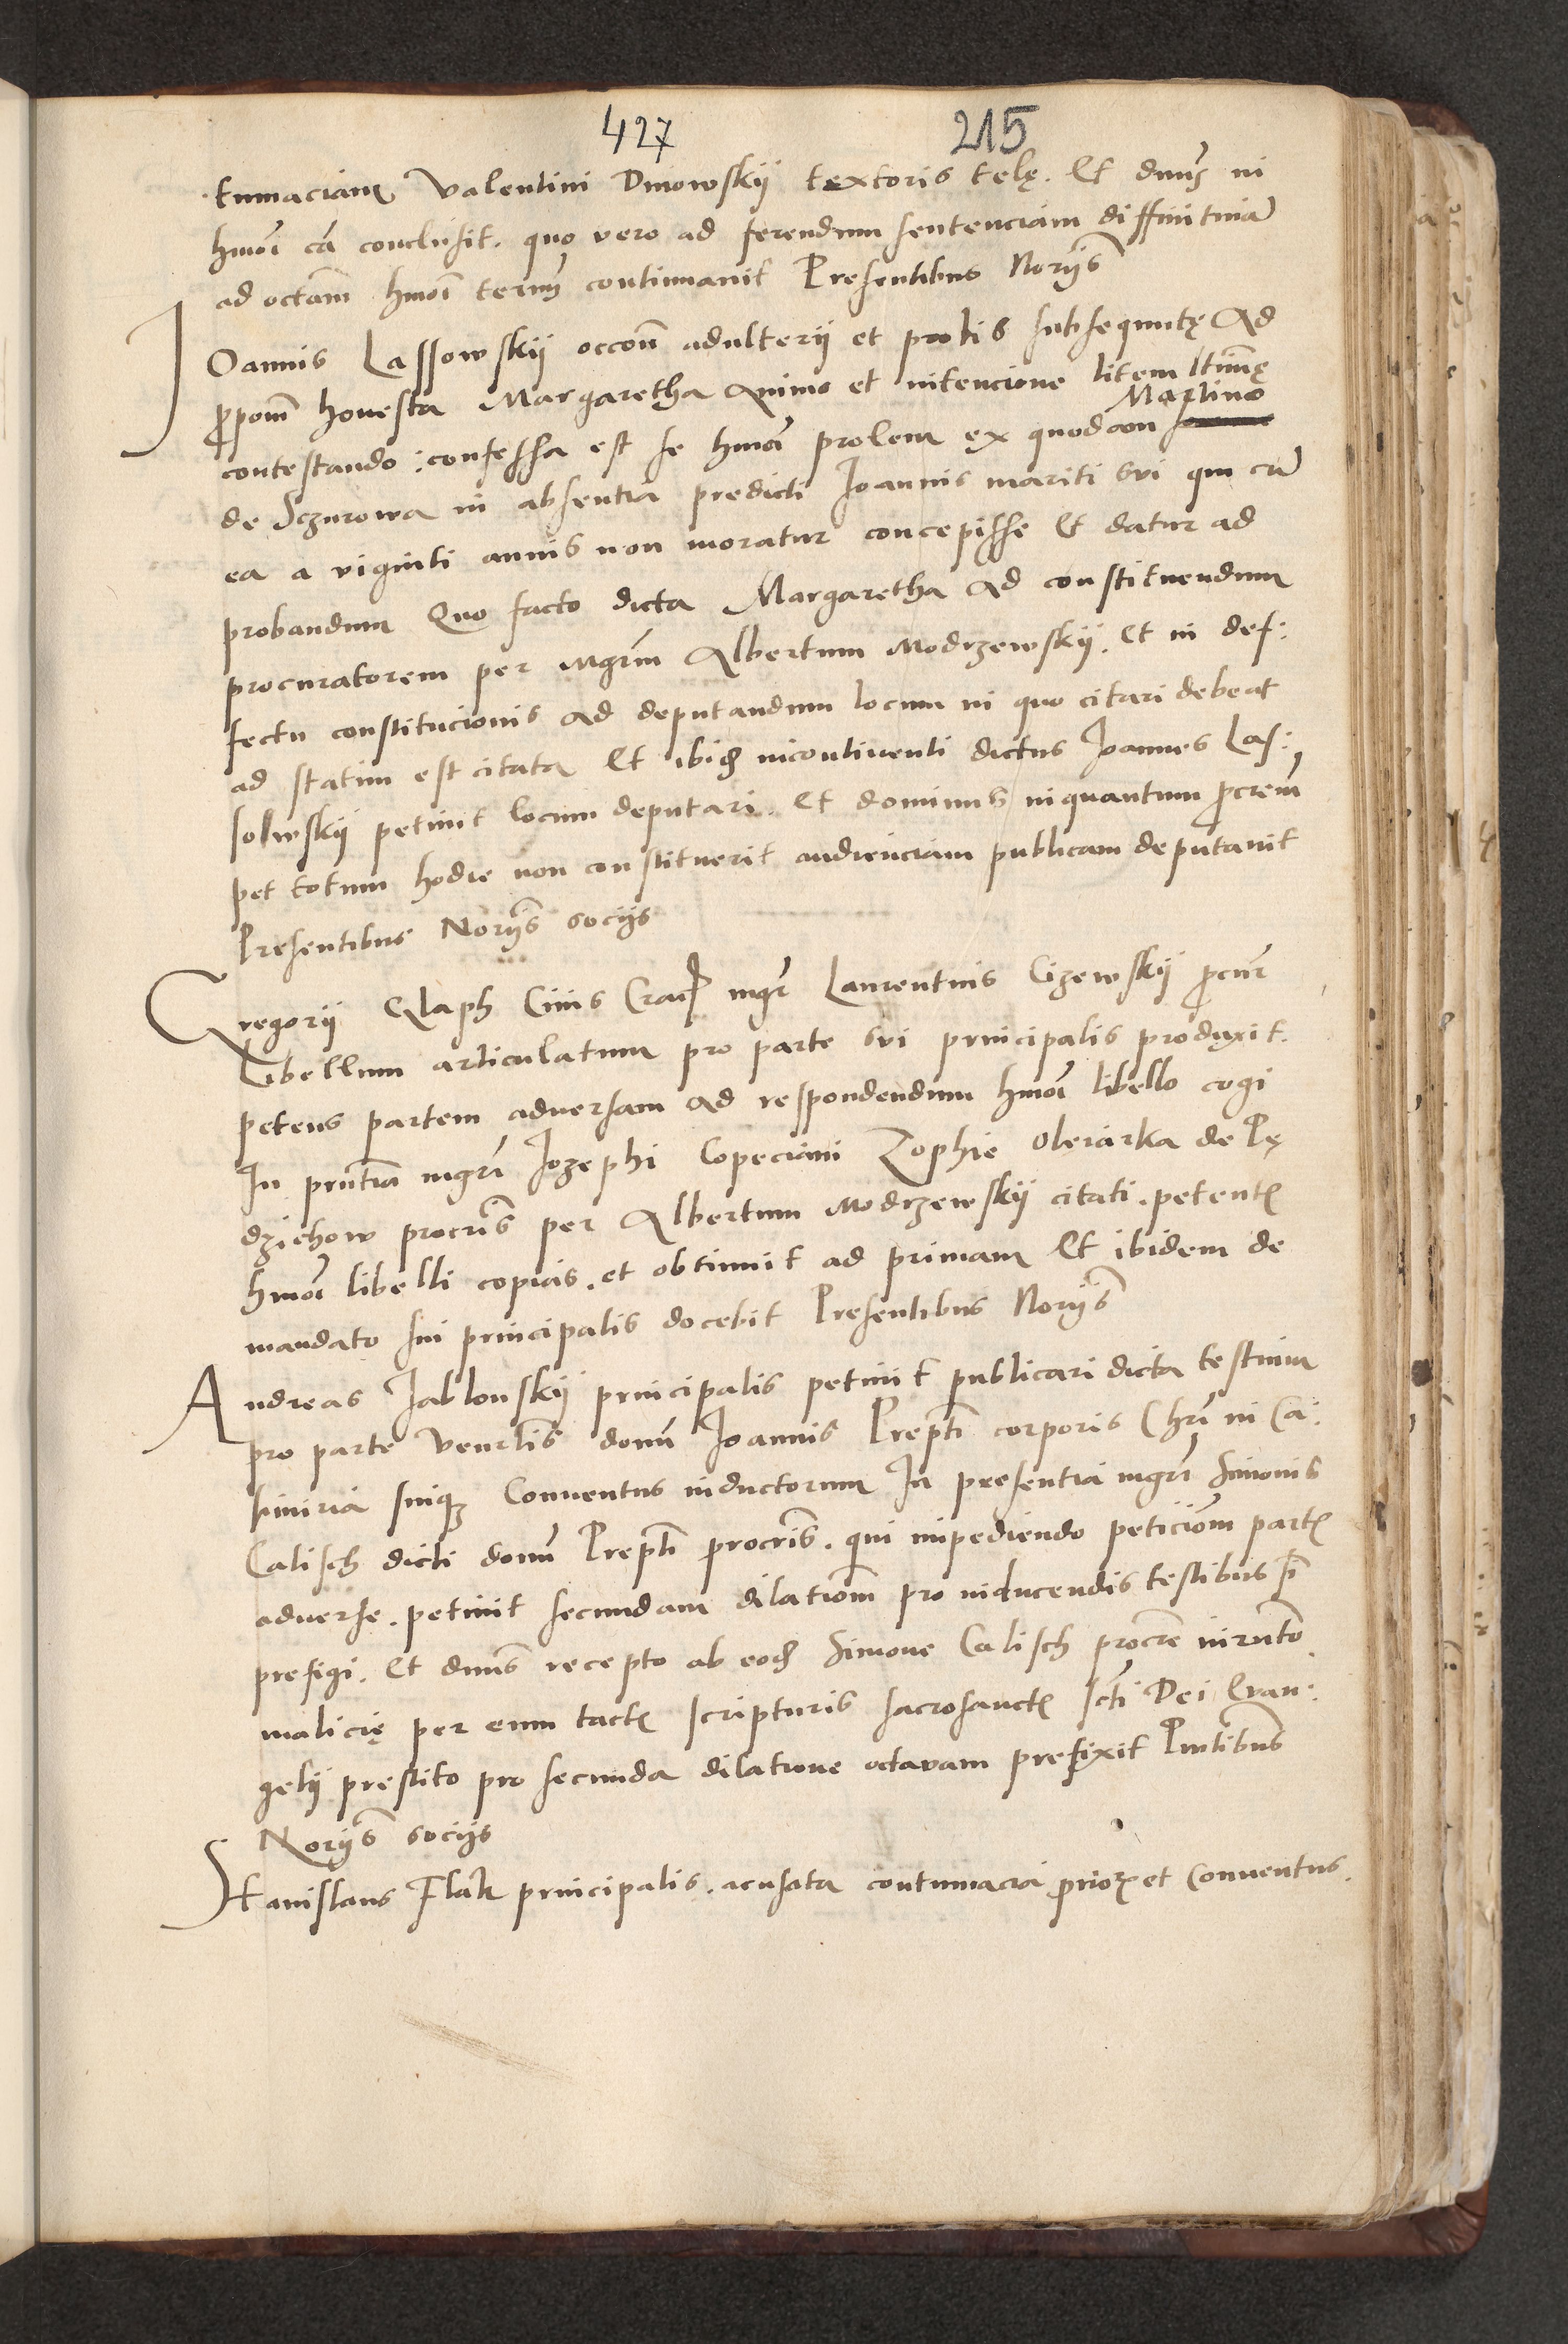 427 215
tumaciam Valentini Dmowskij textoris telę. Et dnus in
hmoi cā conclusit. quo vero ad ferendum sentenciam diffinitivā
ad octam hmoi termū continuavit Presentibus Norijs
Joannis Lassowskij occoñ adulterij et prolis subsequutę Ad
ꝓpoñ honesta Margaretha Animo et intencione litem ltimę
contestando : confessa est se hmoi prolem ex quodam Martino
de Sczurowa in absentia predicti Joannis mariti svi qui cū
ea a viginti annis non moratur concepisse Et datur ad
probandum Quo facto dicta Margaretha Ad constituendum
procuratorem per Mgrm Albertum Modrzewskij. Et in def:
fectu constitucionis Ad deputandum locum in quo citari debeat
ad statim est citata Et ibid incontinenti dictus Joannes Las:
solwskij petivit locum deputari. Et dominus inquantum ꝓcrem
per totum hodie non constituerit audienciam publicam deputavit
Presentibus Norijs socijs
Gregorij Glaph Civis Crac mgr Laurentius Cizewskij ꝓcur
Libellum articulatum pro parte svi principalis produxit.
petens partem adversam Ad respondendum hmoi libello cogi
In pntia mgri Jozephi Copeciani Zophie Oleiarka de Lę
dziehow procris per Albertum Modrzewskij citati. petentis
hmoi libelli copias. et obtinuit ad primam Et ibidem de
mandato sui principalis docebit Presentibus Norijs
Andreas Jablonskij principalis petivit publicari dicta testium
pro parte Venrlis domi Joannis Prepti corporis Chri in Ca:
simiria suiqz Conventus inductorum In presentia mgri Simonis
Calisch dicti domi Prepti procris. qui impediendo peticiom partis
adverse. petivit secundam dilatiom pro inducendis testibus p
prefigi. Et dnus recepto ab eod Simone Calisch procre iurnto
malicię per eum tactis scripturis sacrosanctis scti Dei Evan:
gelij prestito pro secunda dilatione octavam prefixit Pntibus
Norijs socijs
Stanislaus Flak principalis. acusata contumacia prioris et Conventus.